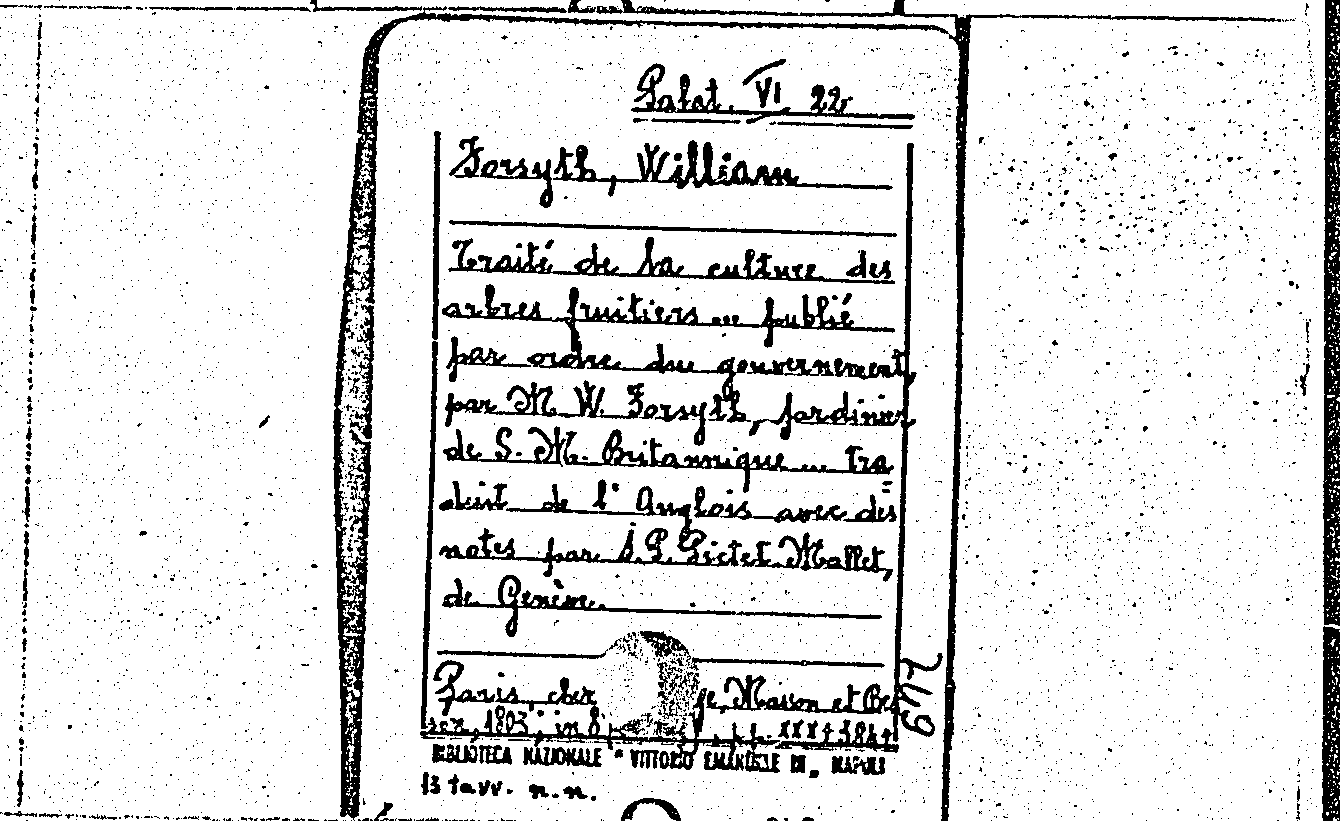 Palat. VI 22
Forsyth, William
Traité de la culture des
arbres fruitiers ... publié
par ordre du gouvernement,
par M. W. Forsyth, jardinier
de S. M. Britannique ... Tra=
duit de l'Anglois avec des
notes par J. P. Pictet-Mallet,
de Genève.
Paris, chez Masson et Bes
son, 1803; in 8
BIBLIOTECA NAZIONALE "VITTORIO EMANUELE III" NAPOLI
13 tavv. n.n.